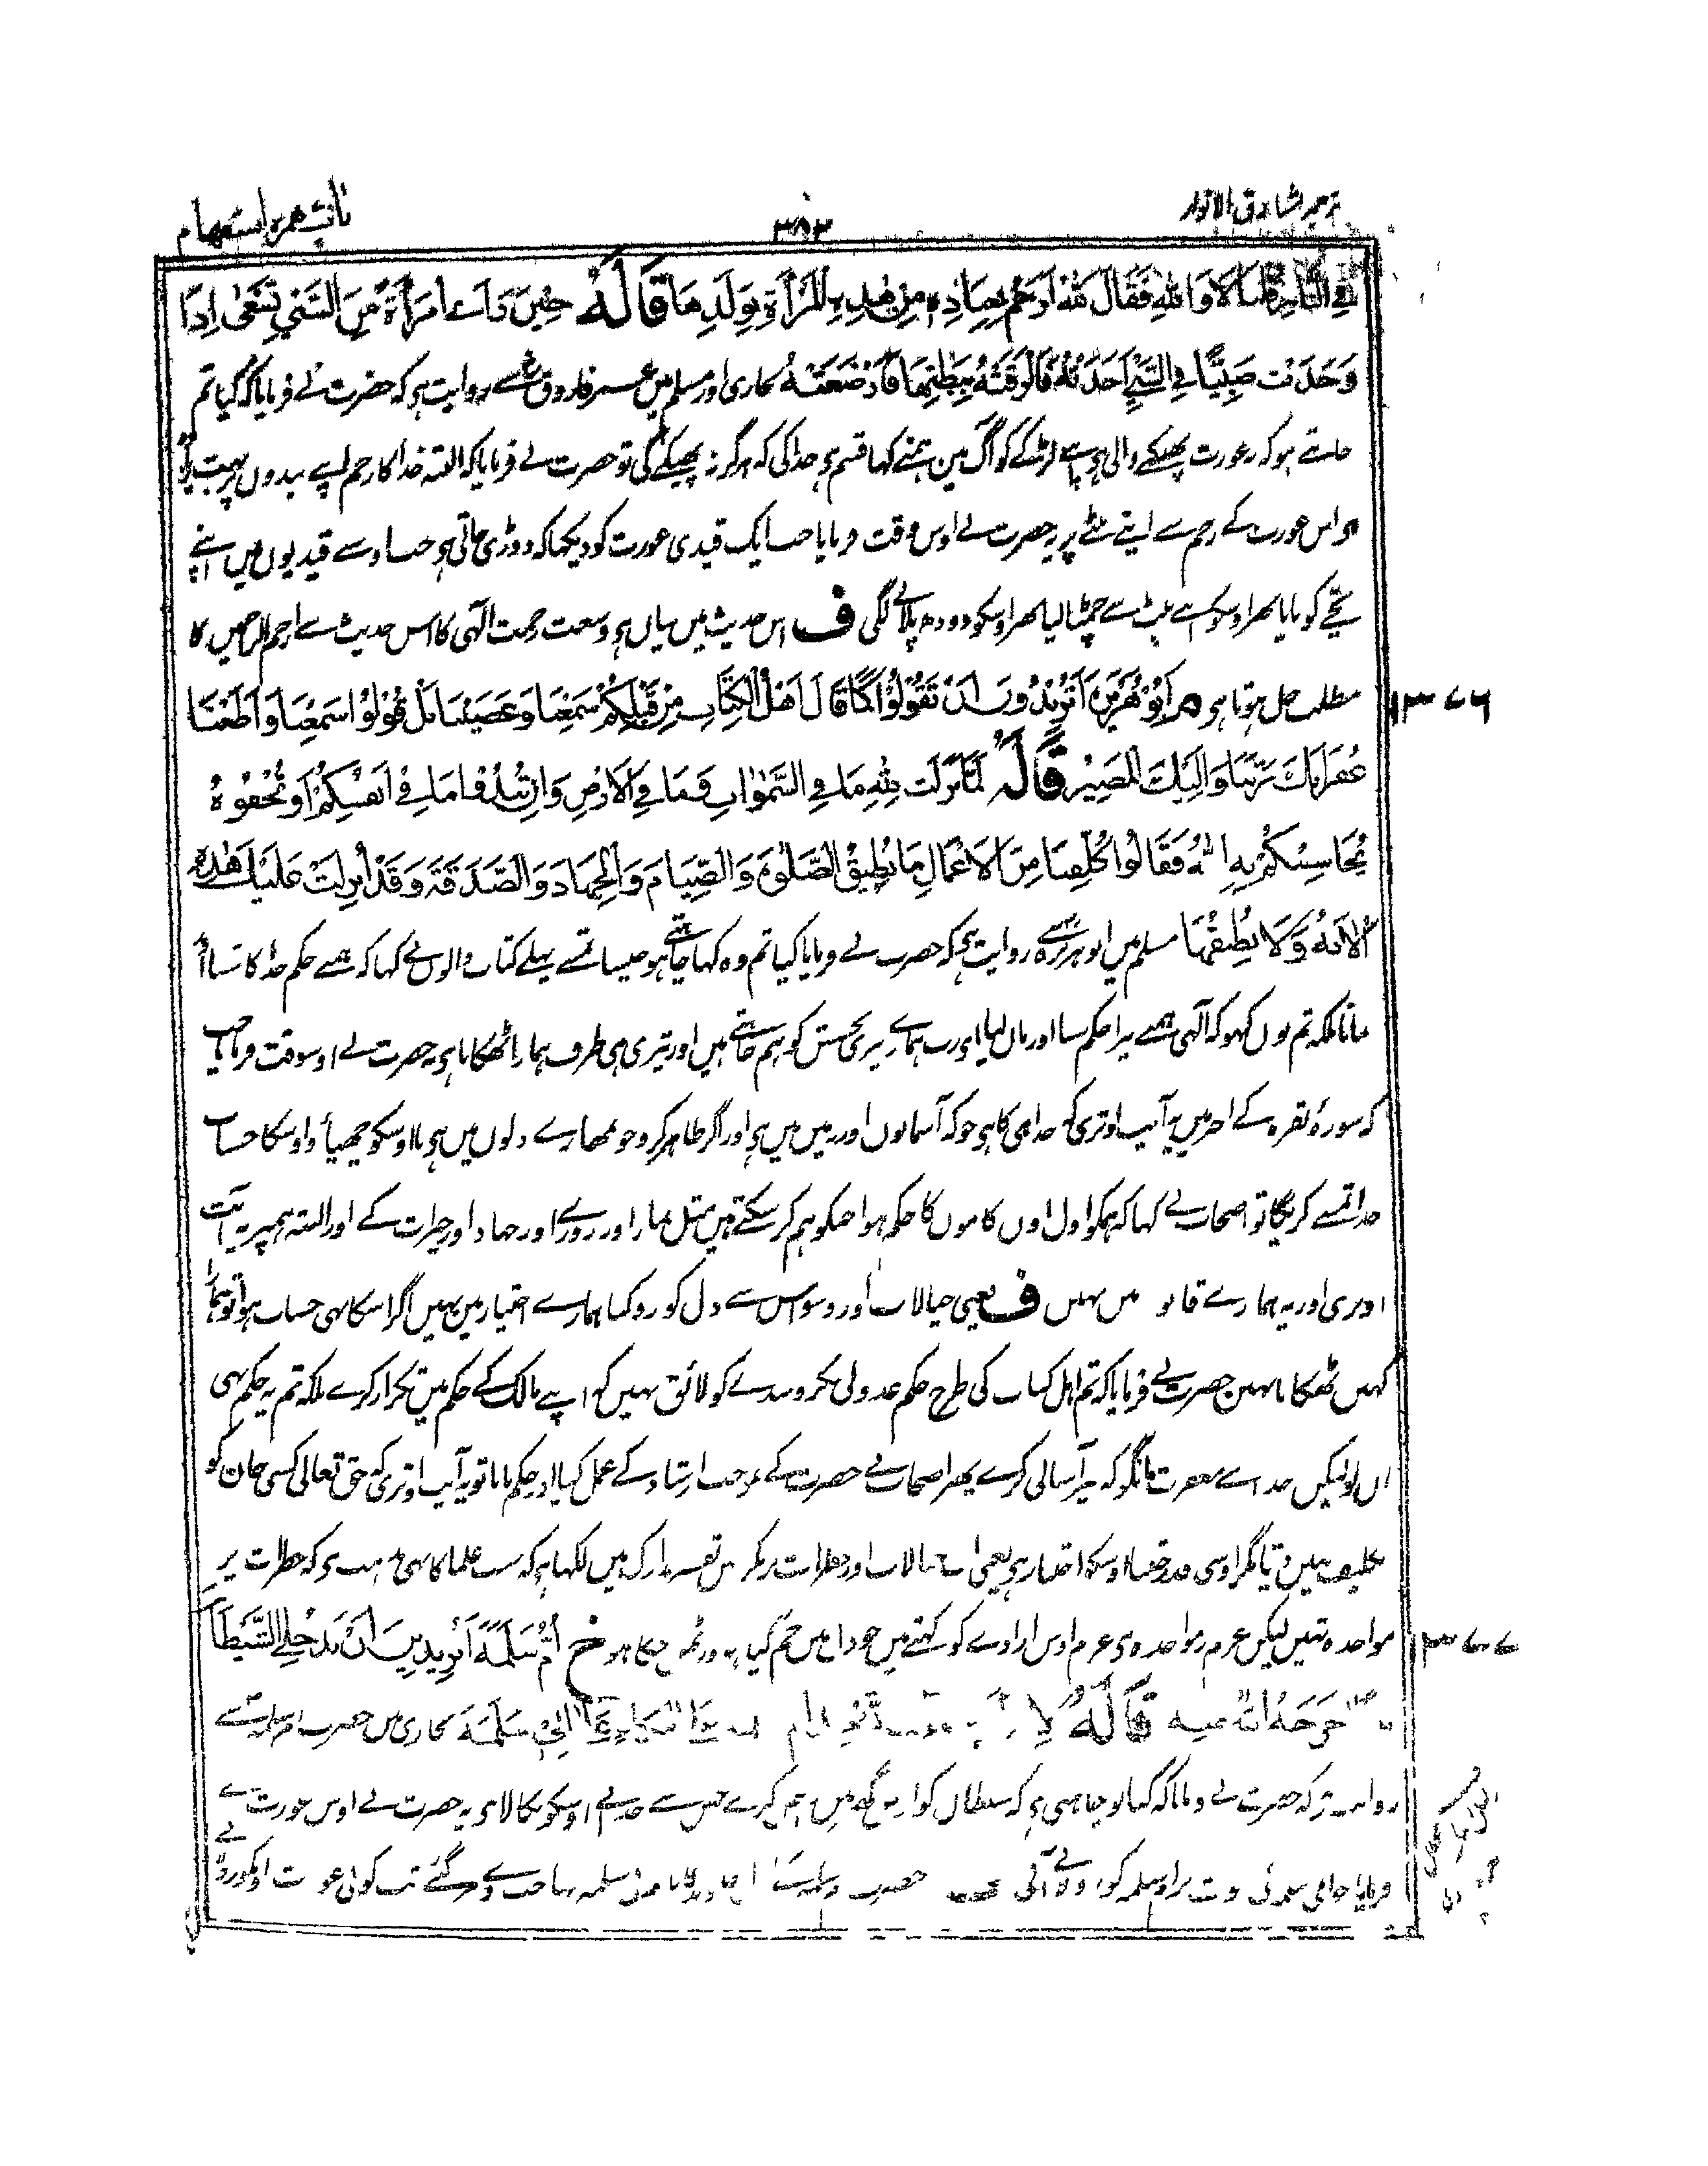 ترجمہ مشارق الانوار ۳۸۲ باب همزہ استفهام
فِي النَّارِ قُلْنَا لَا وَاللهِ فَقَالَ لَلّٰهُ اَرْحَمُ بِعِبَادِهٖ مِنْ هٰذِهِ الْمَرْأَةِ بِوَلَدِهَا قَالَهُ حِيْنَ رَاٰى امْرَأَةً مِّنَ السَّبْيِ تَسْعٰى اِذَا
وَجَدَتْ صَبِيًّا فِي السَّبْيِ اَخَذَتْهُ فَاَلْزَقَتْهُ بِبَطْنِهَا فَاَرْضَعَتْهُ بخاری اور مسلم میں عمر فاروق سے روایت ہی کہ حضرت نے فرمایا کہ کیا تم
جانتے ہو کہ یہ عورت پھینکنے والی ہی اپنے لڑکے کو آگ مین ہمنے کہا قسم ہی خدا کی کہ ہرگز نہ پھینکے گی تو حضرت نے فرمایا کہ البتہ خدا کا رحم اپنے بندوں پر بہت
ہی اس عورت کے رحم سے اپنے بیٹے پر یہ حضرت نے اوس وقت فرمایا جب ایک قیدی عورت کو دیکھا کہ دوڑی جاتی ہی جب اوسے قیدیوں میں اپنے
بچے کو پایا پھر اوسکو اپنے پیٹ سے چمٹا لیا پھر اوسکو دودھ پلانے لگی ف اس حدیث میں بیان ہی وسعت رحمت الٰہی کا اس حدیث سے ارحم الراحمین کا
مطلب حل ہوتا ہی م اَبُوْ هُرَيْرَةَ اَتُرِيْدُوْنَ اَنْ تَقُوْلُوْا كَمَا قَالَ اَهْلُ الْكِتَابِ مِنْ قَبْلِكُمْ سَمِعْنَا وَعَصَيْنَا بَلْ قُوْلُوْا سَمِعْنَا وَاَطَعْنَا ۱۳۷۶
غُفْرَانَكَ رَبَّنَا وَاِلَيْكَ الْمَصِيْرُ قَالَهُ لَمَّا نَزَلَتْ لِلّٰهِ مَا فِي السَّمٰوٰتِ وَمَا فِي الْاَرْضِ وَاِنْ تُبْدُوْا مَا فِيْ اَنْفُسِكُمْ اَوْ تُخْفُوْهُ
يُحَاسِبْكُمْ بِهِ اللهُ فَقَالُوْا كُلِّفْنَا مِنَ الْاَعْمَالِ مَا نُطِيْقُ الصَّلٰوةَ وَالصِّيَامَ وَالْجِهَادَ وَالصَّدَقَةَ وَقَدْ اُنْزِلَتْ عَلَيْكَ هٰذِهِ
الْاٰيَةُ وَلَا نُطِيْقُهَا مسلم میں ابو ہریرہ سے روایت ہی کہ حضرت نے فرمایا کیا تم وہ کہا چاہتے ہو جیسا تمسے پہلے کتاب والوں نے کہا کہ ہمنے حکم خدا کا سنا اور
مانا بلکہ تم یوں کہو کہ الٰہی ہمنے تیرا حکم سنا اور مان لیا ای رب ہمارے تیری بخشش کو ہم چاہتے ہیں اور تیری ہی طرف ہمارا ٹھکانا ہی یہ حضرت نے اوسوقت فرمایا جب
کہ سورۂ بقرہ کے آخر میں یہ آیت اوتری کہ خدا ہی کا ہی جو کہ آسمانوں اور زمین میں ہی اور اگر ظاہر کرو جو تمھارے دلوں میں ہی یا اوسکو چھپاؤ اوسکا حساب
خدا تمسے کریگا تو اصحاب نے کہا کہ ہمکو اول اون کاموں کا حکم ہوا جنکو ہم کر سکتے ہیں مثل نماز اور روزے اور جہاد اور خیرات کے اور البتہ ہمپر یہ آیت
اوتری اور یہ ہمارے قابو میں نہیں ف یعنی خیالات اور وسواس سے دل کو روکنا ہمارے اختیار مین نہیں اگر اسکا بھی حساب ہوا تو ہمارا
کہیں ٹھکانا نہین حضرت نے فرمایا کہ تم اہل کتاب کی طرح حکم عدولی نکرو بندے کو لائق نہیں کہ اپنے مالک کے حکم میں تکرار کرے بلکہ تم یہ حکم بھی
مان لو لیکن خدا سے مغفرت مانگو کہ آسانی کرے پھر اصحاب نے حضرت کے بموجب ارشاد کے عمل کیا اور حکم مانا تو یہ آیت اوتری کہ حق تعالی کسی جان کو
تکلیف نہیں دیتا مگر اوسی قدر جتنا اوسکا اختیار ہی یعنی خیالات اور خطرات تفسیر مدارک میں لکھا ہی کہ سب علما کا یہی مذہب ہی کہ خطرات پر
مواخذہ نہیں لیکن عزم پر مواخذہ ہی عزم اوس ارادے کو کہتے ہیں جو دل میں جم گیا ہو خ اُمُّ سَلَمَةَ اَتُرِيْدِيْنَ اَنْ تُدْخِلِي الشَّيْطَانَ ۱۳۷۷
اَخْرَجَهُ اللهُ مِنْهُ قَالَهُ لِاَبِيْ سَلَمَةَ بخاری میں حضرت ام سلمہ سے
روایت ہی کہ حضرت نے فرمایا کہ کیا تو چاہتی ہی کہ شیطان کو اوس گھر میں داخل کرے جس سے خدا نے اوسکو نکالا ہی یہ حضرت نے اوس عورت سے
فرمایا جو ابو سلمہ کو رونے آئی حضرت ام سلمہ